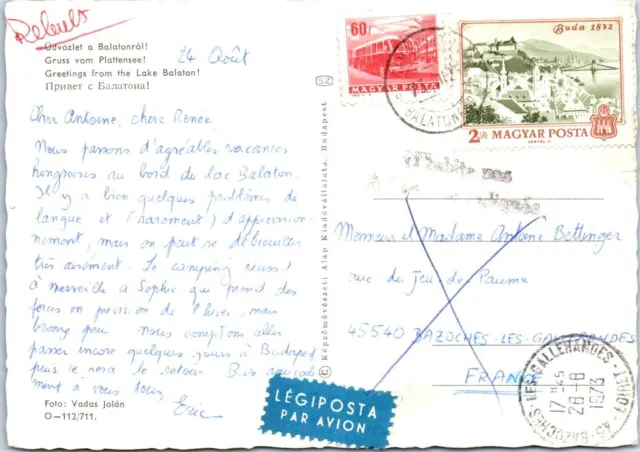 Rebuts
Üdvözlet a Balatonról!
Gruss vom Plattensee!
Greetings from the Lake Balaton!
Привет с Балатона!
24 Août
Cher Antoine, chere Renée,
Nous passons d'agréables vacances
hongroises au bord du lac Balaton.
Il y a bien quelques problèmes de
langue et (rarement) d'approvision-
nement, mais on peut se débrouiller
très aisément. Le camping réussi
à merveille à Sophie qui prend des
forces en prévision de l'hiver, mais
bronze peu. nous comptons aller
passer encore quelques jours à Budapest
puis ce sera le retour. Bien amicale-
ment à vous tous,
Eric
Foto: Vadas Jolán
O-112/711.
SZ
© Képzőművészeti Alap Kiadóvállalata, Budapest
60f
MAGYAR POSTA
Buda 1872
2Ft MAGYAR POSTA
BALATON
N'habite pas
Monsieur et Madame Antoine Bettinger
rue du Jeu de Paume
45540 BAZOCHES-LES-GALLERANDES
FRANCE
LÉGIPOSTA
PAR AVION
45-BAZOCHES-LES-GALLERANDES-LOIRET
17H45
28-8
1973